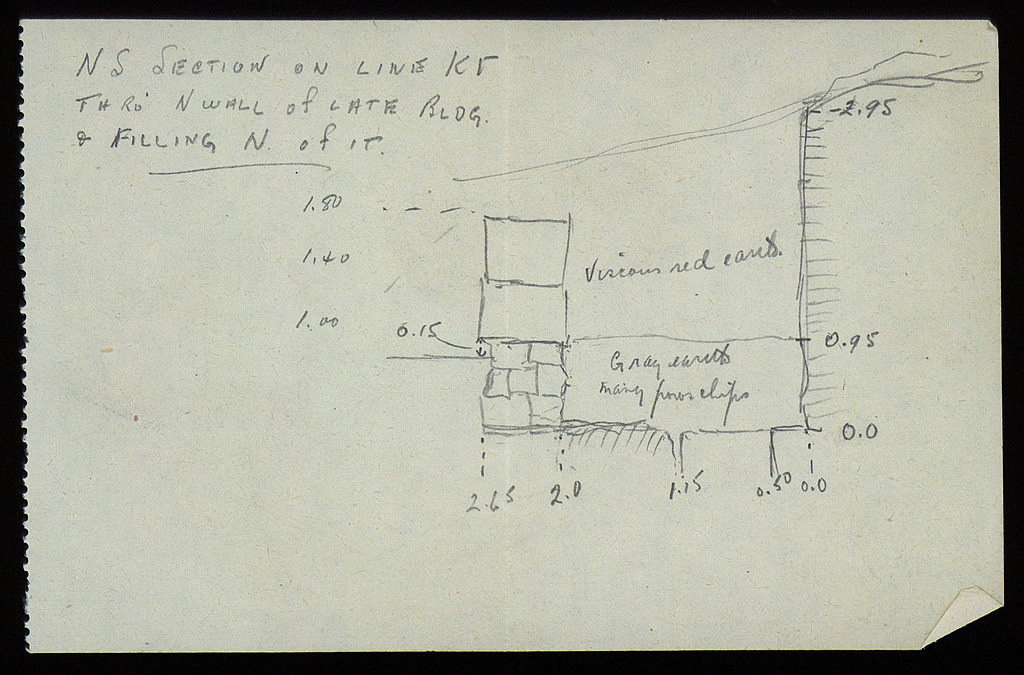 NS SECTION ON LINE KΓ
THRO' N WALL of LATE BLDG.
& FILLING N. of IT.
-2.95
1.80
1.40
Viscious red earth.
1.00
0.15
0.95
Gray earth
many poros chips
0.0
2.65
2.0
1.15
0.50
0.0